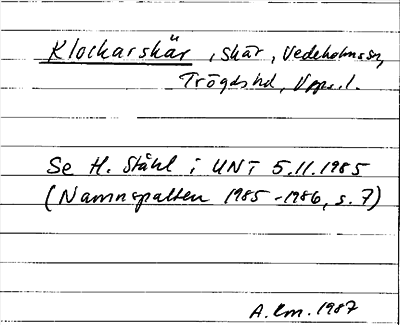 Klockarskär, skär, Vedeholmssn,
Trögds hd, Upps. l.
Se H. Ståhl i UNT 5.11.1985
(Namnspalten 1985-1986, s. 7)
A. Rm. 1987